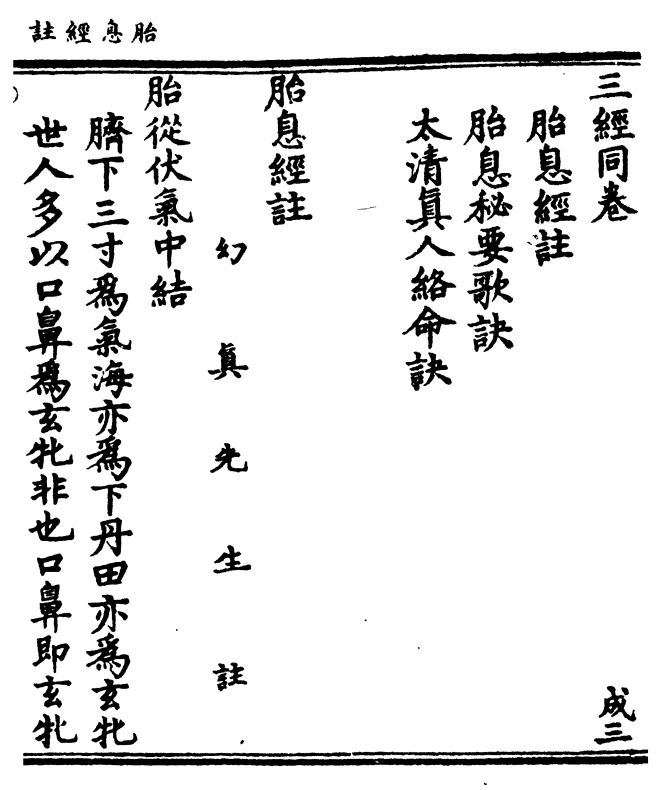 胎息經註
三經同卷
成三
胎息經註
胎息秘要歌訣
太清眞人絡命訣
胎息經註
幻眞先生註
胎從伏氣中結
臍下三寸爲氣海亦爲下丹田亦爲玄牝
世人多以口鼻爲玄牝非也口鼻即玄牝